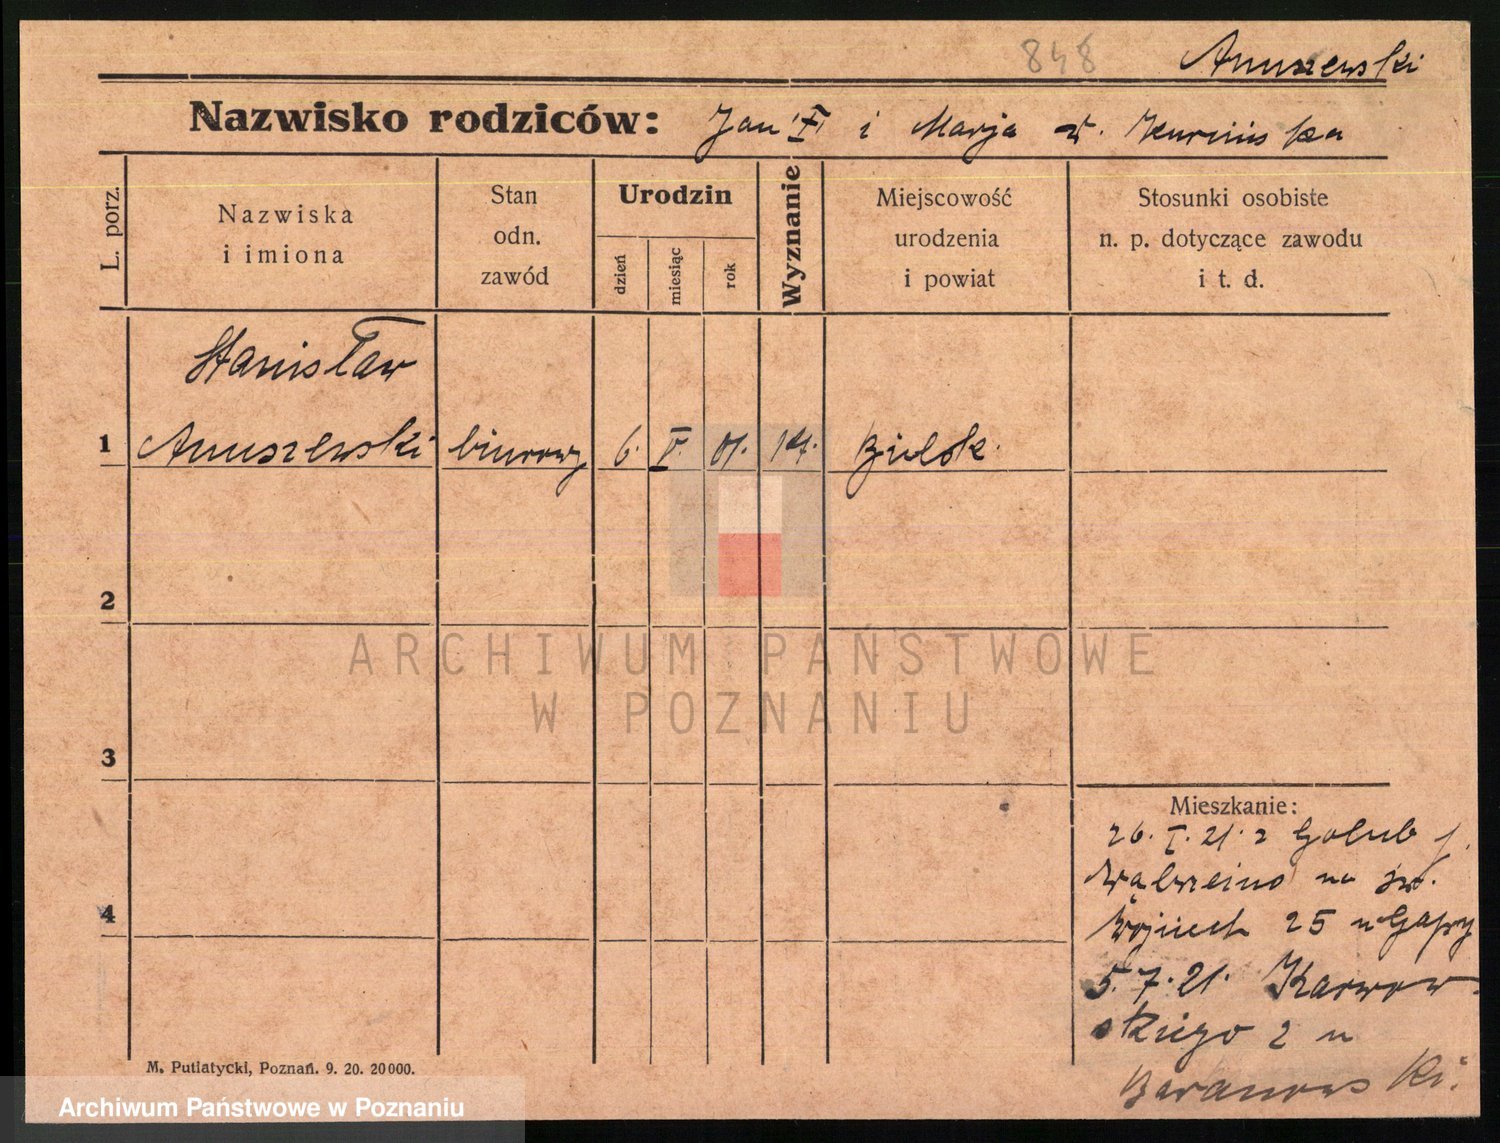 848 Anuszewski
Nazwisko rodziców: Jan i Marja z.
L. porz.
Nazwiska
i imiona
Stan
odn.
zawód
Urodzin
dzień
miesiąc
rok
Wyznanie
Miejscowość
urodzenia
i powiat
Stosunki osobiste
n. p. dotyczące zawodu
i t. d.
Stanisław
1 Anuszewski biurowy 6. V. 01. Bielsk.
2
ARCHIWUM PAŃSTWOWE
W POZNANIU
3
Mieszkanie:
26. I. 21. z Golub
na św.
4 Wojciech 25 u
5. 7. 21. Karwow-
skiego 2 u
Baranowski.
M. Putiatycki, Poznań. 9. 20. 20000.
Archiwum Państwowe w Poznaniu